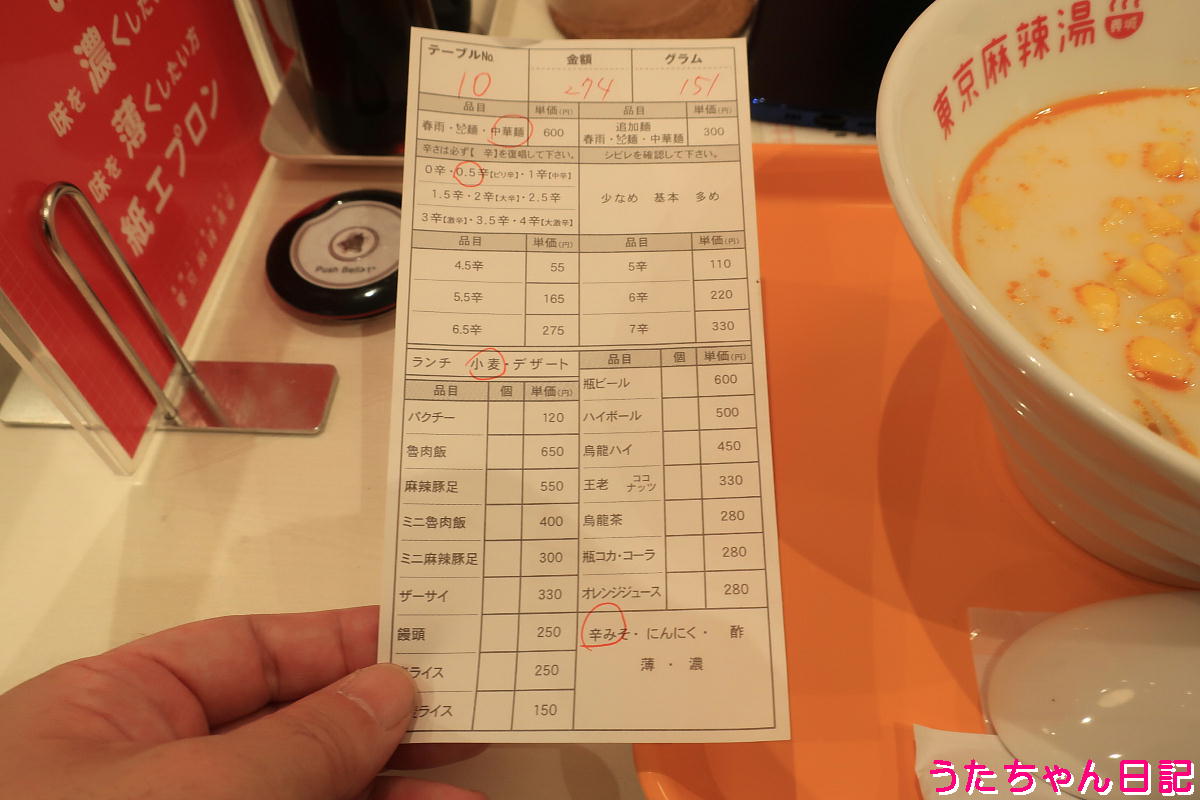 味を濃くしたい方
味を薄くしたい方
紙エプロン
Push Bell
東京麻辣湯
テーブルNo. 金額 グラム
10 274 151
品目 単価(円) 品目 単価(円)
春雨・麺・中華麺 600 追加麺 春雨・麺・中華麺 300
辛さは必ず【 辛】を復唱して下さい。 シビレを確認して下さい。
0辛・0.5辛【ピリ辛】・1辛【中辛】
1.5辛・2辛【大辛】・2.5辛 少なめ 基本 多め
3辛【激辛】・3.5辛・4辛【大激辛】
品目 単価(円) 品目 単価(円)
4.5辛 55 5辛 110
5.5辛 165 6辛 220
6.5辛 275 7辛 330
ランチ 小麦・デザート 品目 個 単価(円)
品目 個 単価(円) 瓶ビール 600
パクチー 120 ハイボール 500
魯肉飯 650 烏龍ハイ 450
麻辣豚足 550 王老 ココナッツ 330
ミニ魯肉飯 400 烏龍茶 280
ミニ麻辣豚足 300 瓶コカ・コーラ 280
ザーサイ 330 オレンジジュース 280
饅頭 250 辛みそ・にんにく・ 酢
ライス 250 薄・濃
ライス 150
うたちゃん日記